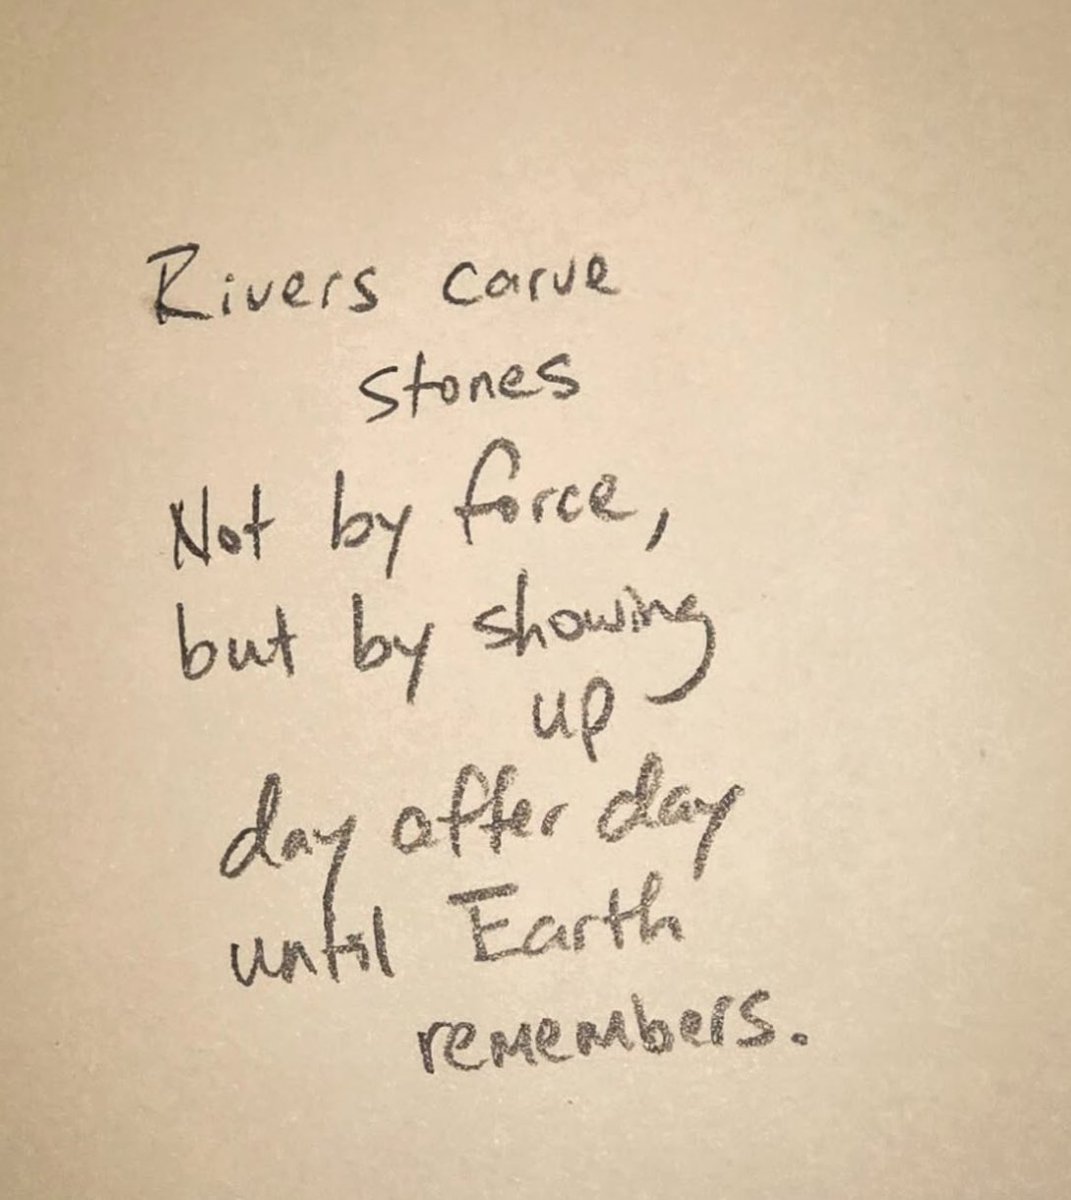 Rivers carve
stones
Not by force,
but by showing
up
day after day
until Earth
remembers.